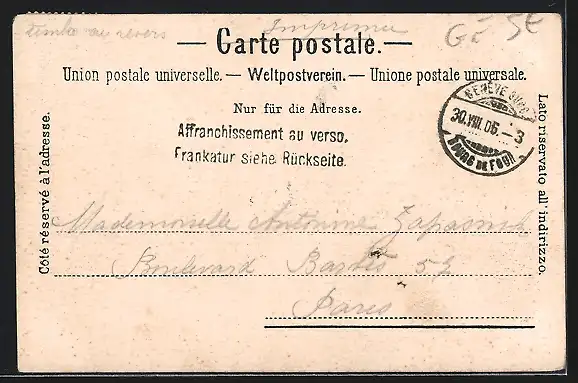 timbre au revers
Imprimée
— Carte postale. —
Union postale universelle. — Weltpostverein. — Unione postale universale.
Nur für die Adresse.
Côté réservé à l'adresse.
Lato riservato all'indirizzo.
Affranchissement au verso.
Frankatur siehe Rückseite.
30.VIII.06.-3
BOURG DE FOUR
Mademoiselle Antonine
Boulevard
Paris